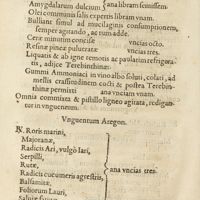 Amygdalarum dulcium } ana libram semissem.
Olei communis salis expertis libram vnam.
Bulliant simul ad mucilaginis consumptionem,
semper agitando, ac tum adde.
Ceræ minutim concisæ vncias octo.
Resinæ pineæ pulueratæ vncias tres.
Liquatis & ab igne remotis ac paulatim refrigera-
tis, adijce Terebinthinæ
Gummi Ammoniaci in vino albo soluti, colati, ad
mellis crassitudinem cocti & postea Terebin-
thinæ permixti ana vnciam vnam.
Omnia commixta & pistillo ligneo agitata, redigan-
tur in vnguentum.
Vnguentum Aregon.
℞. Roris marini,
Maioranæ,
Radicis Ari, vulgò Iari,
Serpilli,
Rutæ,
Radicis cucumeris agrestis,
Balsamitæ,
Foliorum Lauri,
} ana vncias tres.